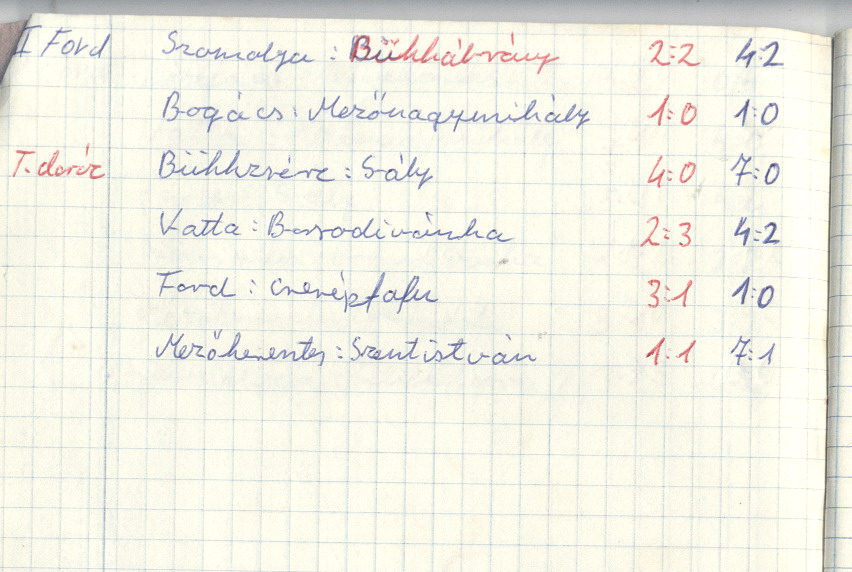 I Ford Szomolya : Bükkábrány 2:2 4:2
Bogács : Mezőnagymihály 1:0 1:0
T.daróc Bükkzsérc : Sály 4:0 7:0
Vatta : Borsodivánka 2=3 4=2
Ford : Cserépfalu 3:1 1:0
Mezőkeresztes : Szentistván 1:1 7:1